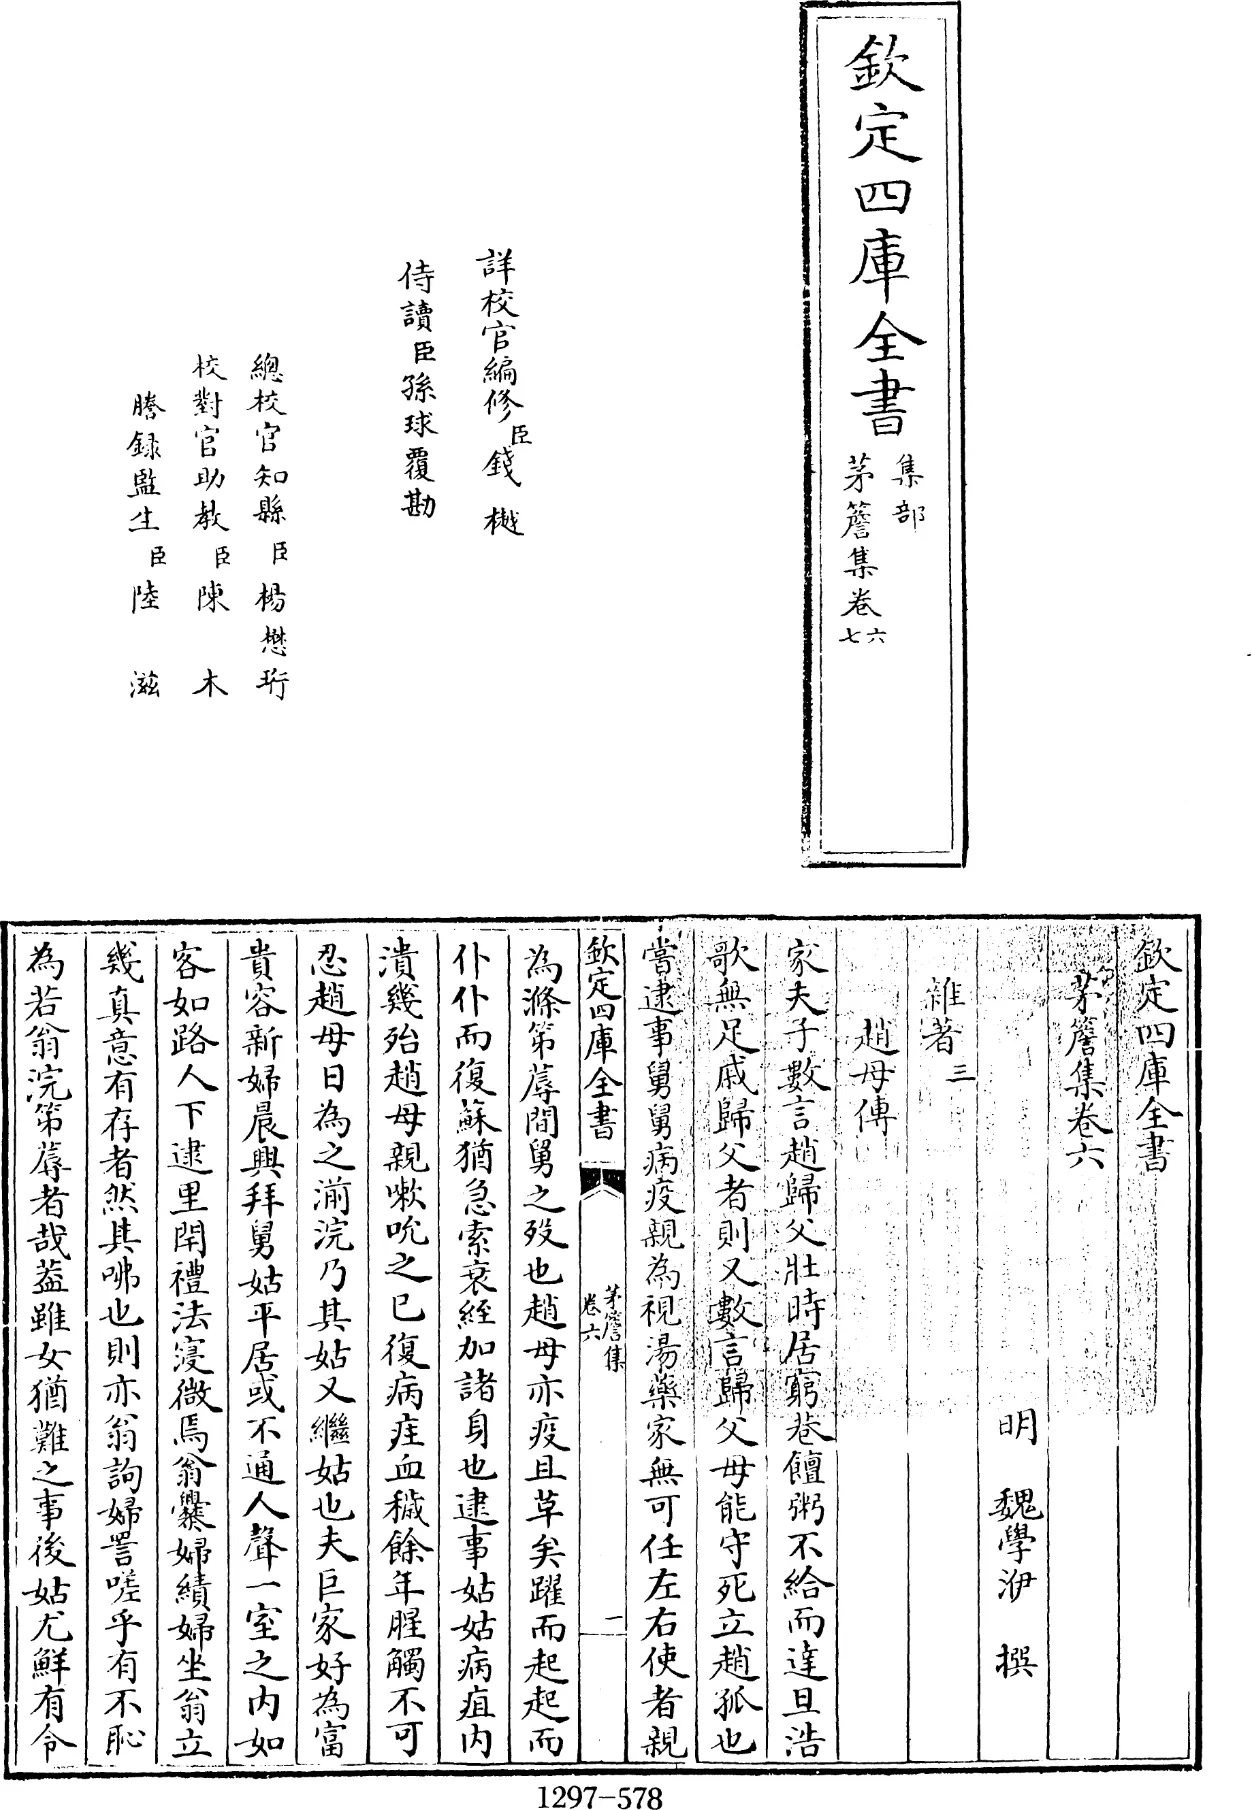 欽定四庫全書
集部
茅簷集卷六
七
詳校官編修臣錢樾
侍讀臣孫球覆勘
總校官知縣臣楊懋珩
校對官助教臣陳木
謄録監生臣陸滋
欽定四庫全書
茅簷集卷六
明 魏學洢 撰
雜著三
趙母傳
家夫子數言趙歸父壯時居窮巷饘粥不給而達旦浩
歌無足戚歸父者則又數言歸父母能守死立趙孤也
嘗逮事舅舅病疫親為視湯藥家無可任左右使者親
欽定四庫全書
茅簷集
卷六
一
為滌第蓐間舅之歿也趙母亦疫且草矣躍而起起而
仆仆而復蘇猶急索衰絰加諸身也逮事姑姑病疽内
潰幾殆趙母親嗽吮之已復病疰血穢餘年腥觸不可
忍趙母日為之湔浣乃其姑又繼姑也夫巨家好為富
貴容新婦晨興拜舅姑平居或不通人聲一室之内如
客如路人下逮里閈禮法寖微焉翁爨婦績婦坐翁立
幾真意有存者然其咈也則亦翁訽婦詈嗟乎有不恥
為若翁浣第蓐者哉葢雖女猶難之事後姑尤鮮有令
1297-578